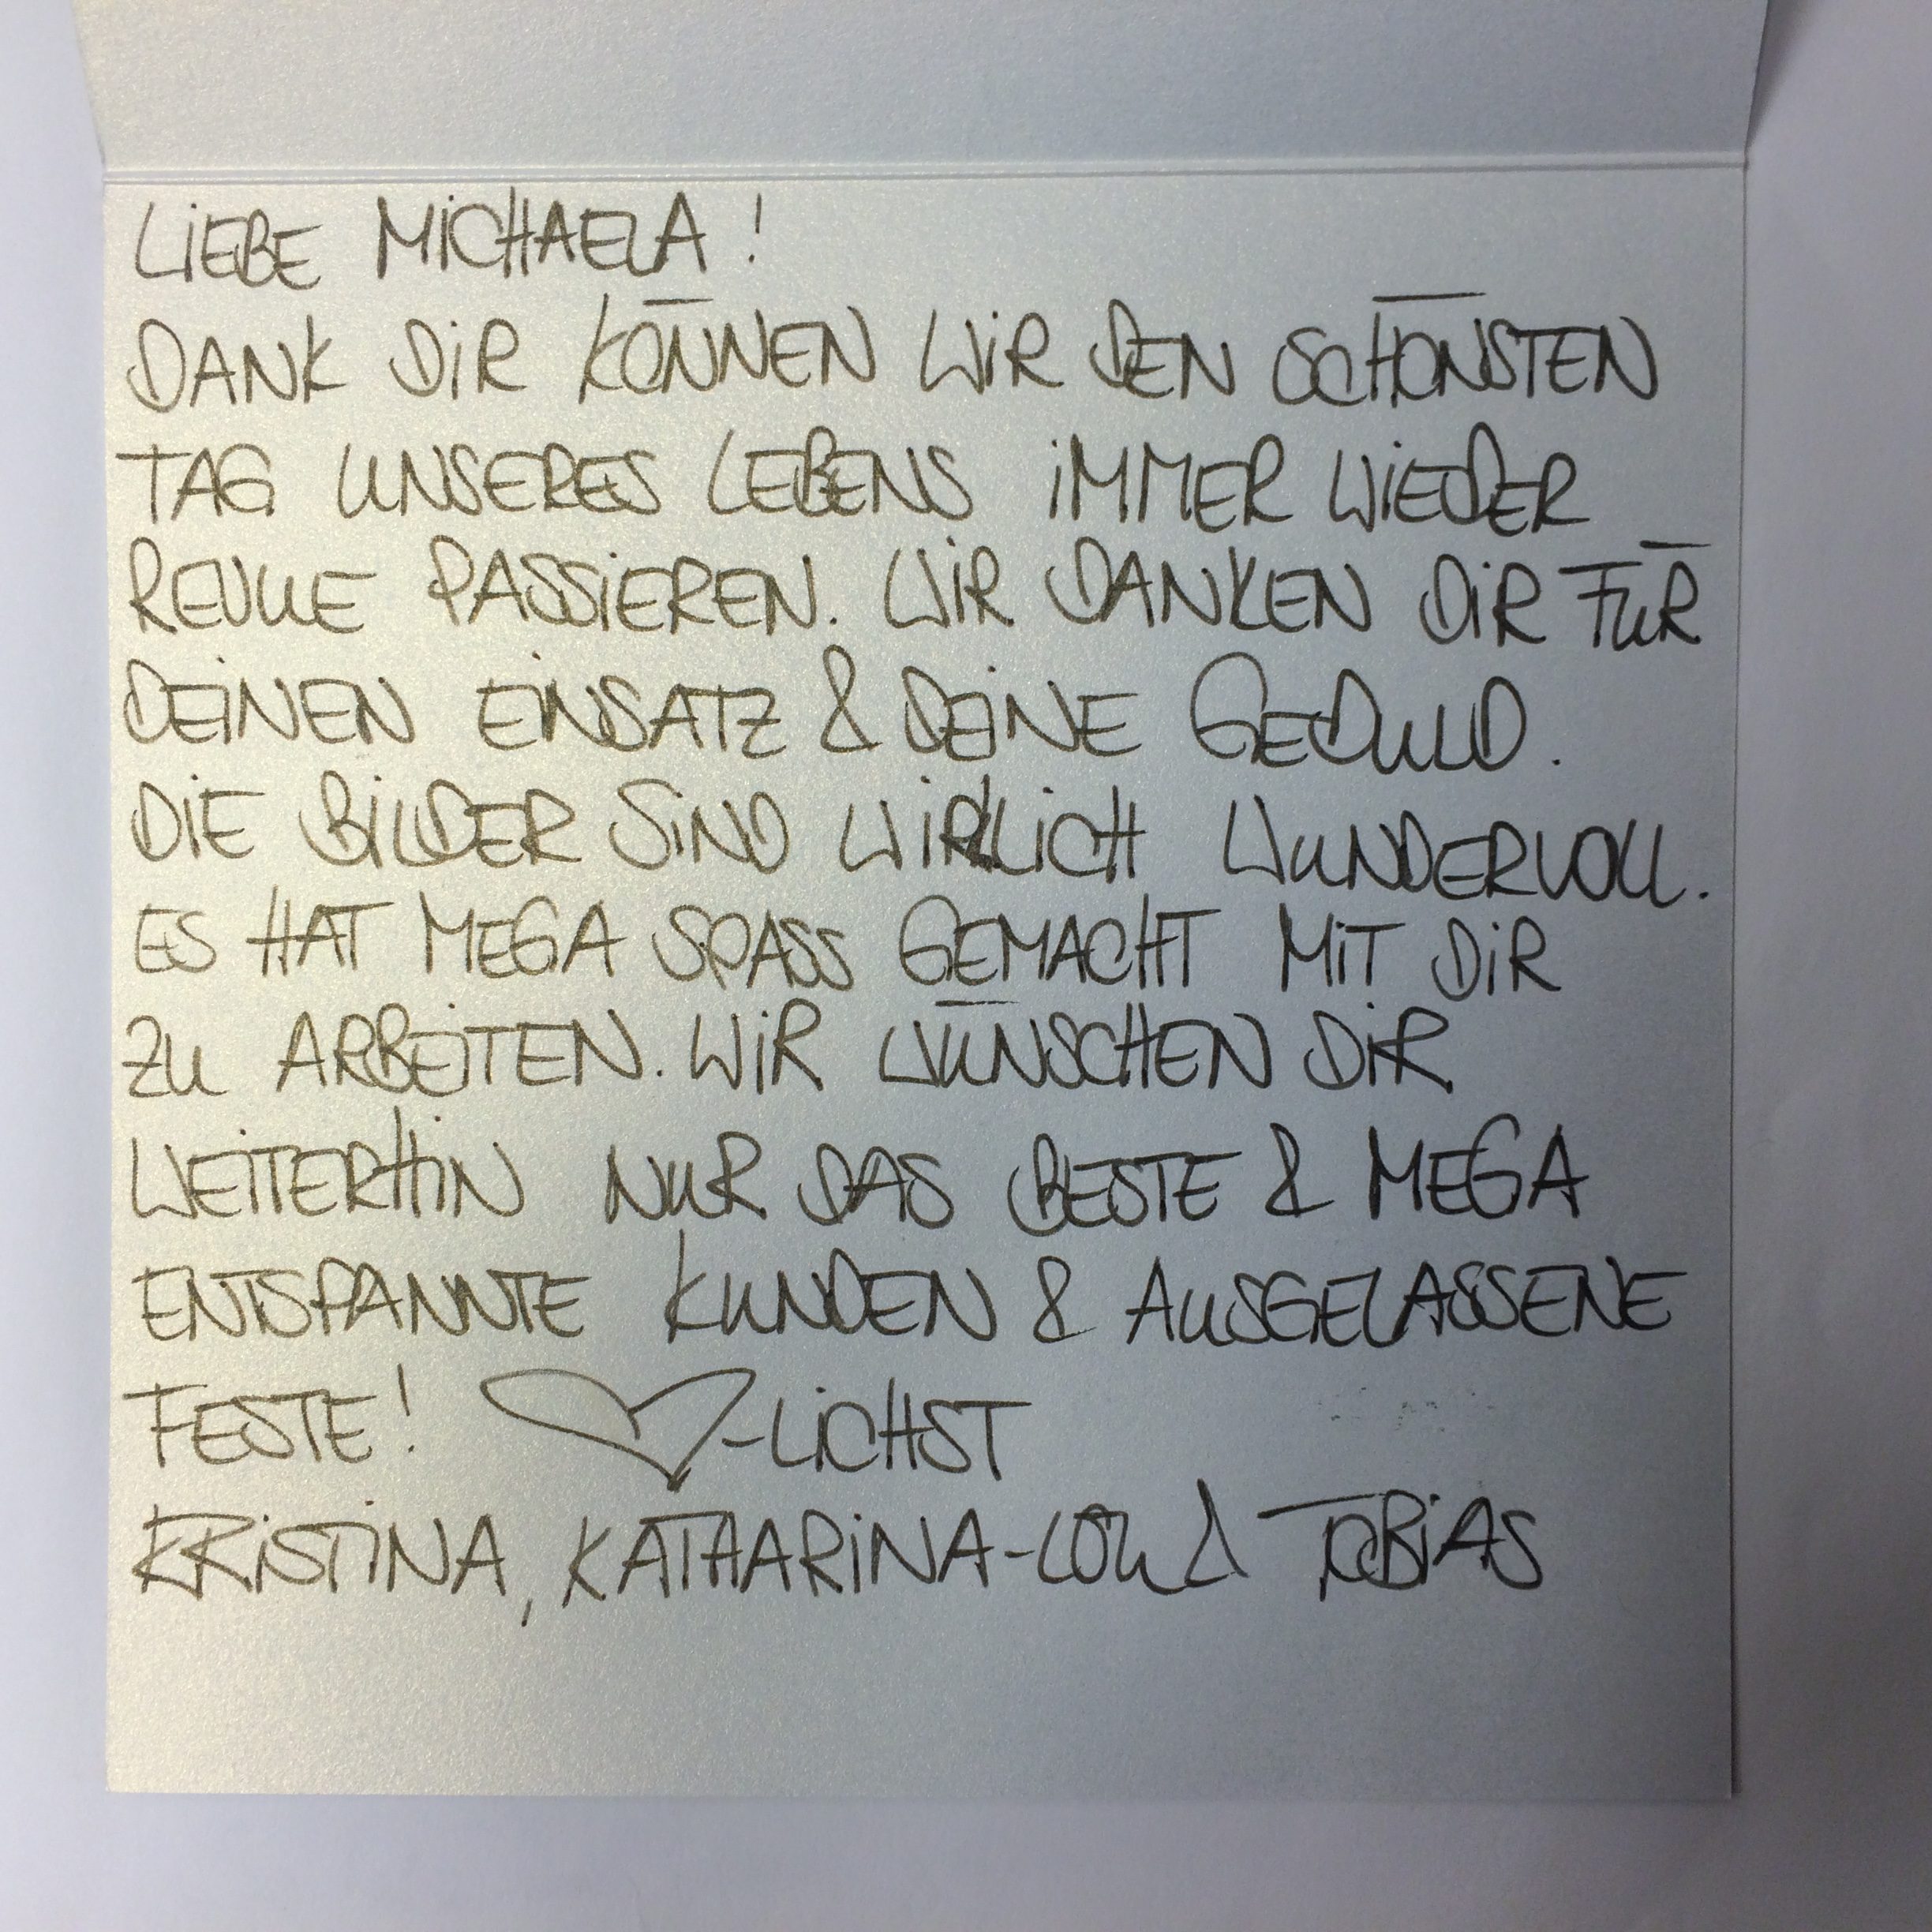 LIEBE MICHAELA!
DANK DIR KÖNNEN WIR DEN SCHÖNSTEN
TAG UNSERES LEBENS IMMER WIEDER
REVUE PASSIEREN. WIR DANKEN DIR FÜR
DEINEN EINSATZ & DEINE GEDULD.
DIE BILDER SIND WIRKLICH WUNDERVOLL.
ES HAT MEGA SPASS GEMACHT MIT DIR
ZU ARBEITEN. WIR WÜNSCHEN DIR
WEITERHIN NUR DAS BESTE & MEGA
ENTSPANNTE KUNDEN & AUSGELASSENE
FESTE! ♡-LICHST
KRISTINA, KATHARINA-LOU & TOBIAS